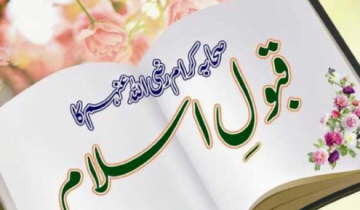 صحابہ کرام رضی اللہ عنہم کا
قبولِ اسلام